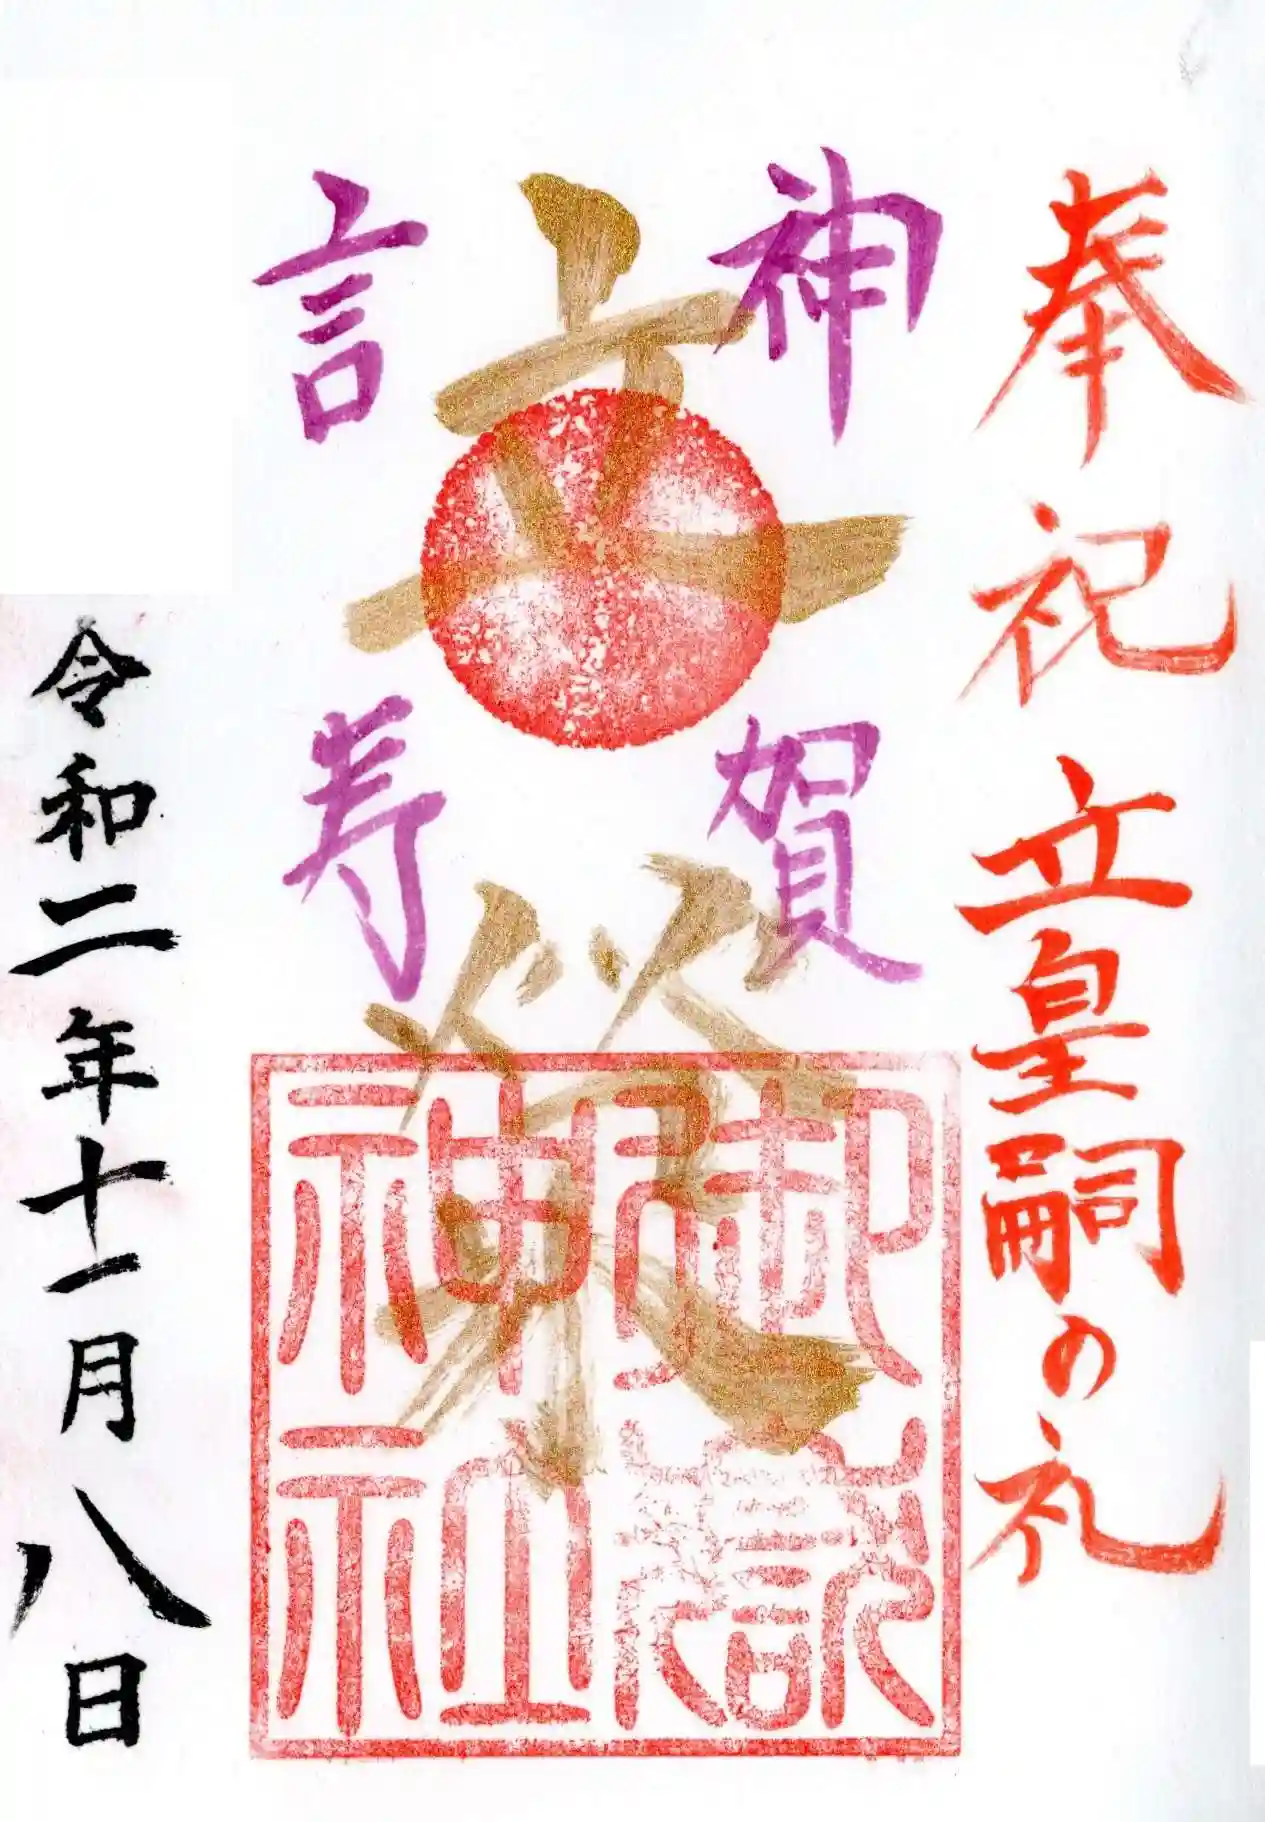 奉祝 立皇嗣の礼
神賀
立祭
言寿
神社
令和二年十一月八日